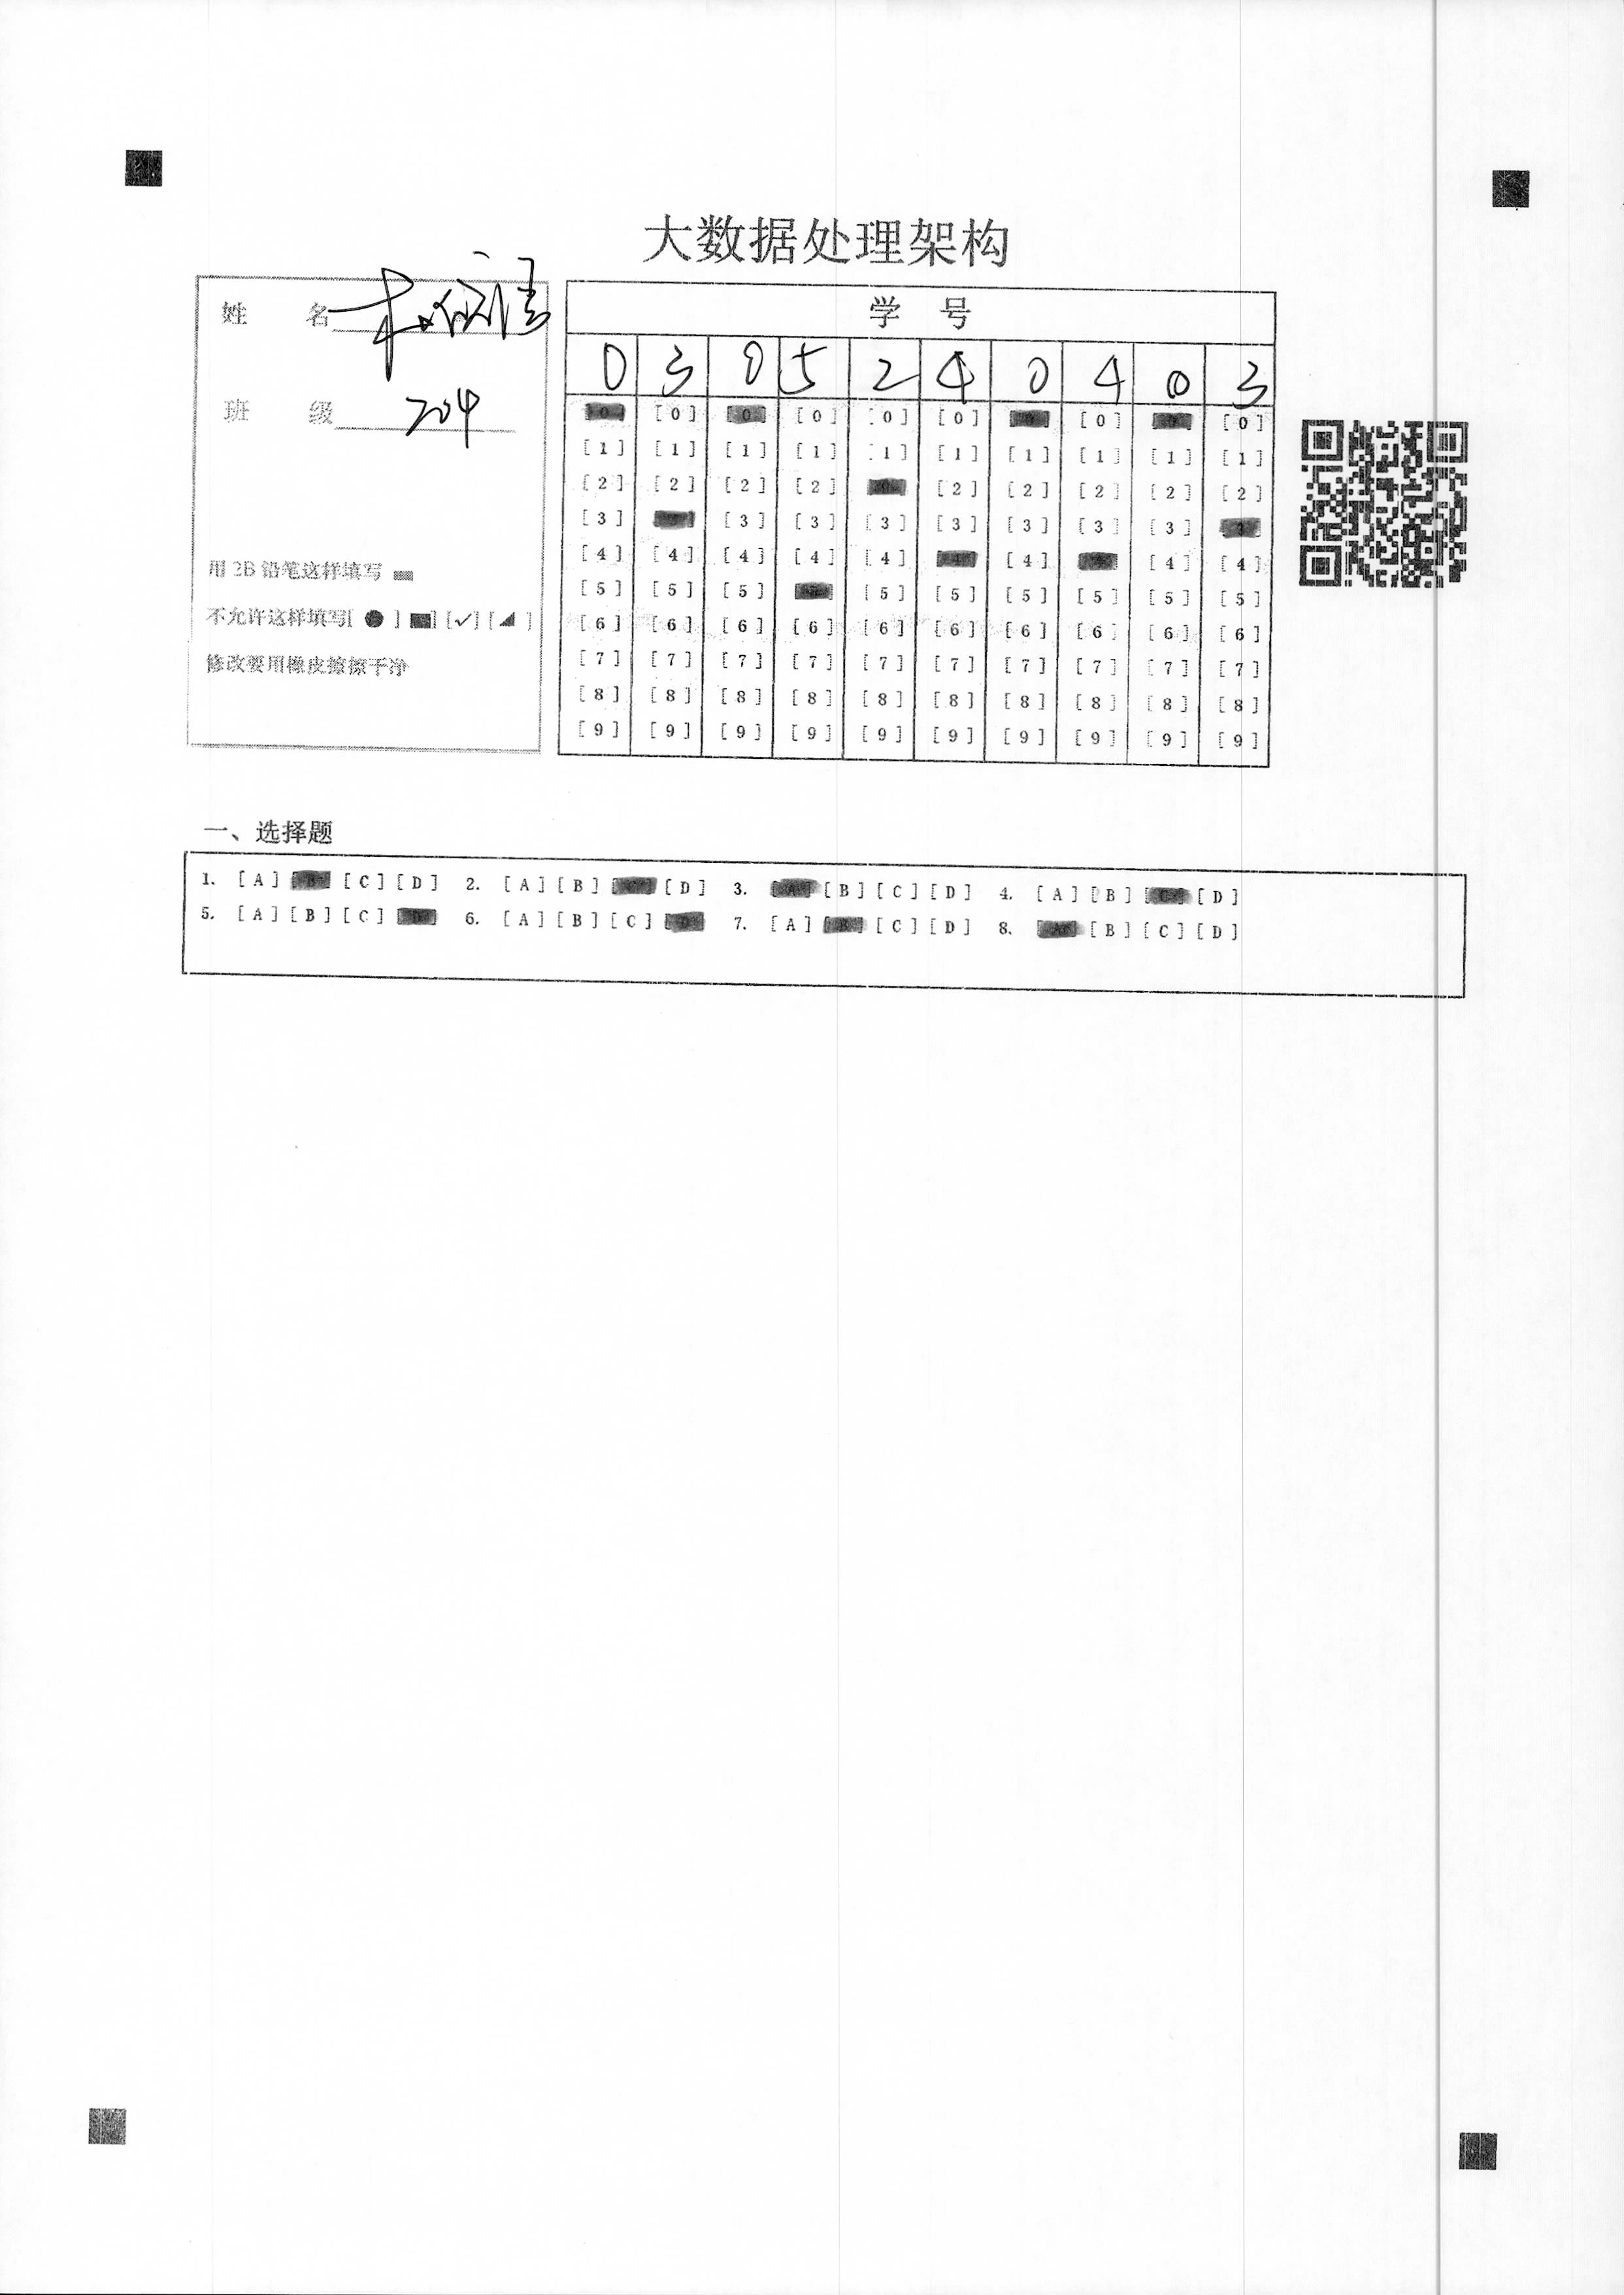 大数据处理架构
姓 名
班 级 204
用 2B 铅笔这样填写
不允许这样填写[ ● ] [✓] [ ]
修改要用橡皮擦擦干净
学 号
0 3 0 5 2 4 0 4 0 3
[0] [0] [0] [0] [0] [0] [0] [0] [0] [0]
[1] [1] [1] [1] [1] [1] [1] [1] [1] [1]
[2] [2] [2] [2] [2] [2] [2] [2] [2]
[3] [3] [3] [3] [3] [3] [3] [3]
[4] [4] [4] [4] [4] [4] [4] [4]
[5] [5] [5] [5] [5] [5] [5] [5] [5]
[6] [6] [6] [6] [6] [6] [6] [6] [6] [6]
[7] [7] [7] [7] [7] [7] [7] [7] [7] [7]
[8] [8] [8] [8] [8] [8] [8] [8] [8] [8]
[9] [9] [9] [9] [9] [9] [9] [9] [9] [9]
一、选择题
1. [A] [B] [C] [D] 2. [A] [B] [C] [D] 3. [A] [B] [C] [D] 4. [A] [B] [C] [D]
5. [A] [B] [C] [D] 6. [A] [B] [C] [D] 7. [A] [B] [C] [D] 8. [A] [B] [C] [D]